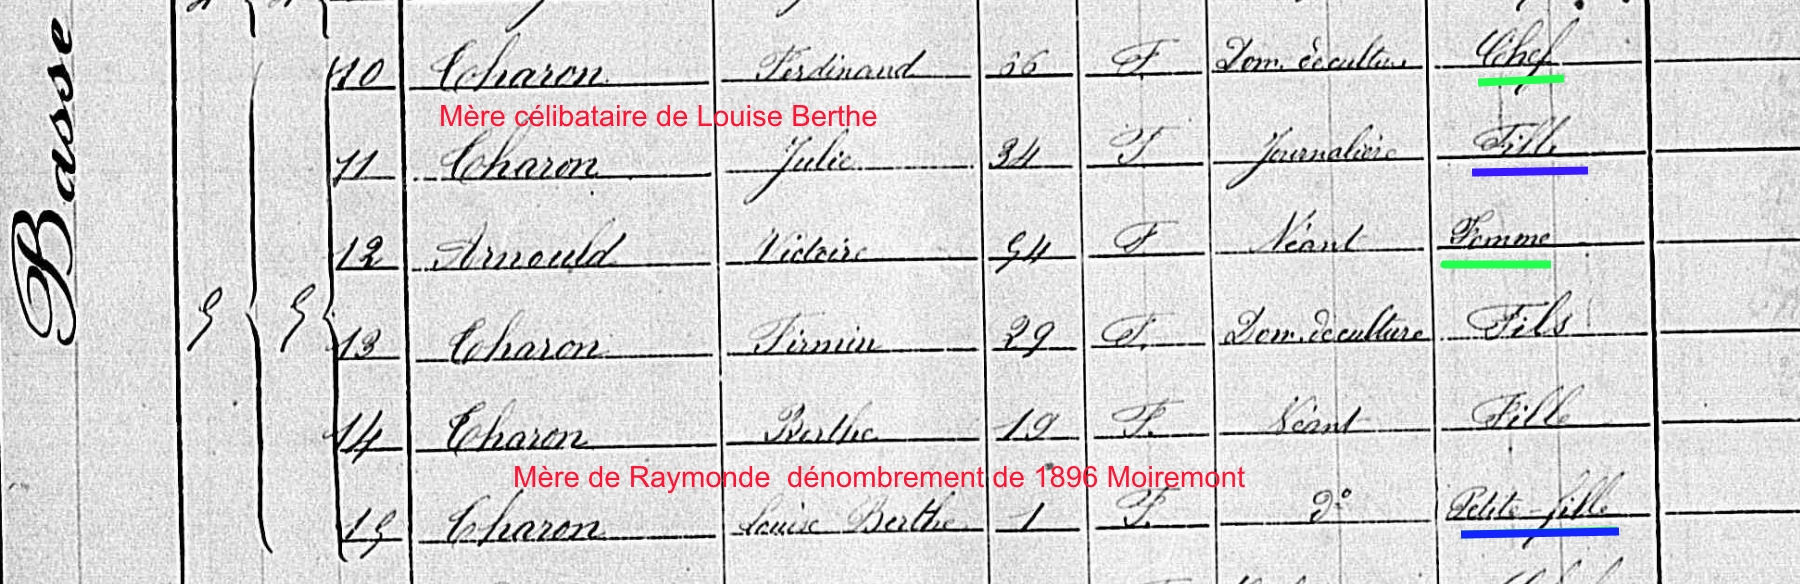 Basse
10 Charon Ferdinand 66 F. Dom. de culture Chef
Mère célibataire de Louise Berthe
11 Charon Julie 34 F Journalière Fille
12 Arnould Victoire 54 F Néant Femme
5 5 13 Charon Firmin 29 F. Dom. de culture Fils
14 Charon Berthe 19 F. Néant Fille
Mère de Raymonde dénombrement de 1896 Moiremont
15 Charon Louise Berthe 1 F. do Petite-fille